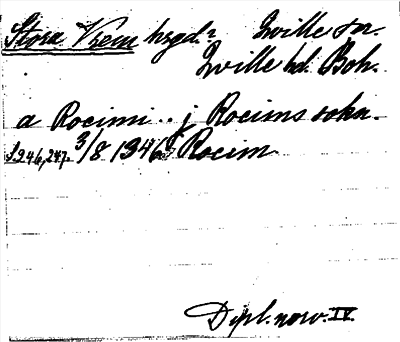 Stora Vrem hrgd? Tville sn.
Tville hd. Boh.
a Rocimi .. j Rocims sokn.
s. 246, 247. 3/8 1346 Rocim
Dipl. norv. IV.